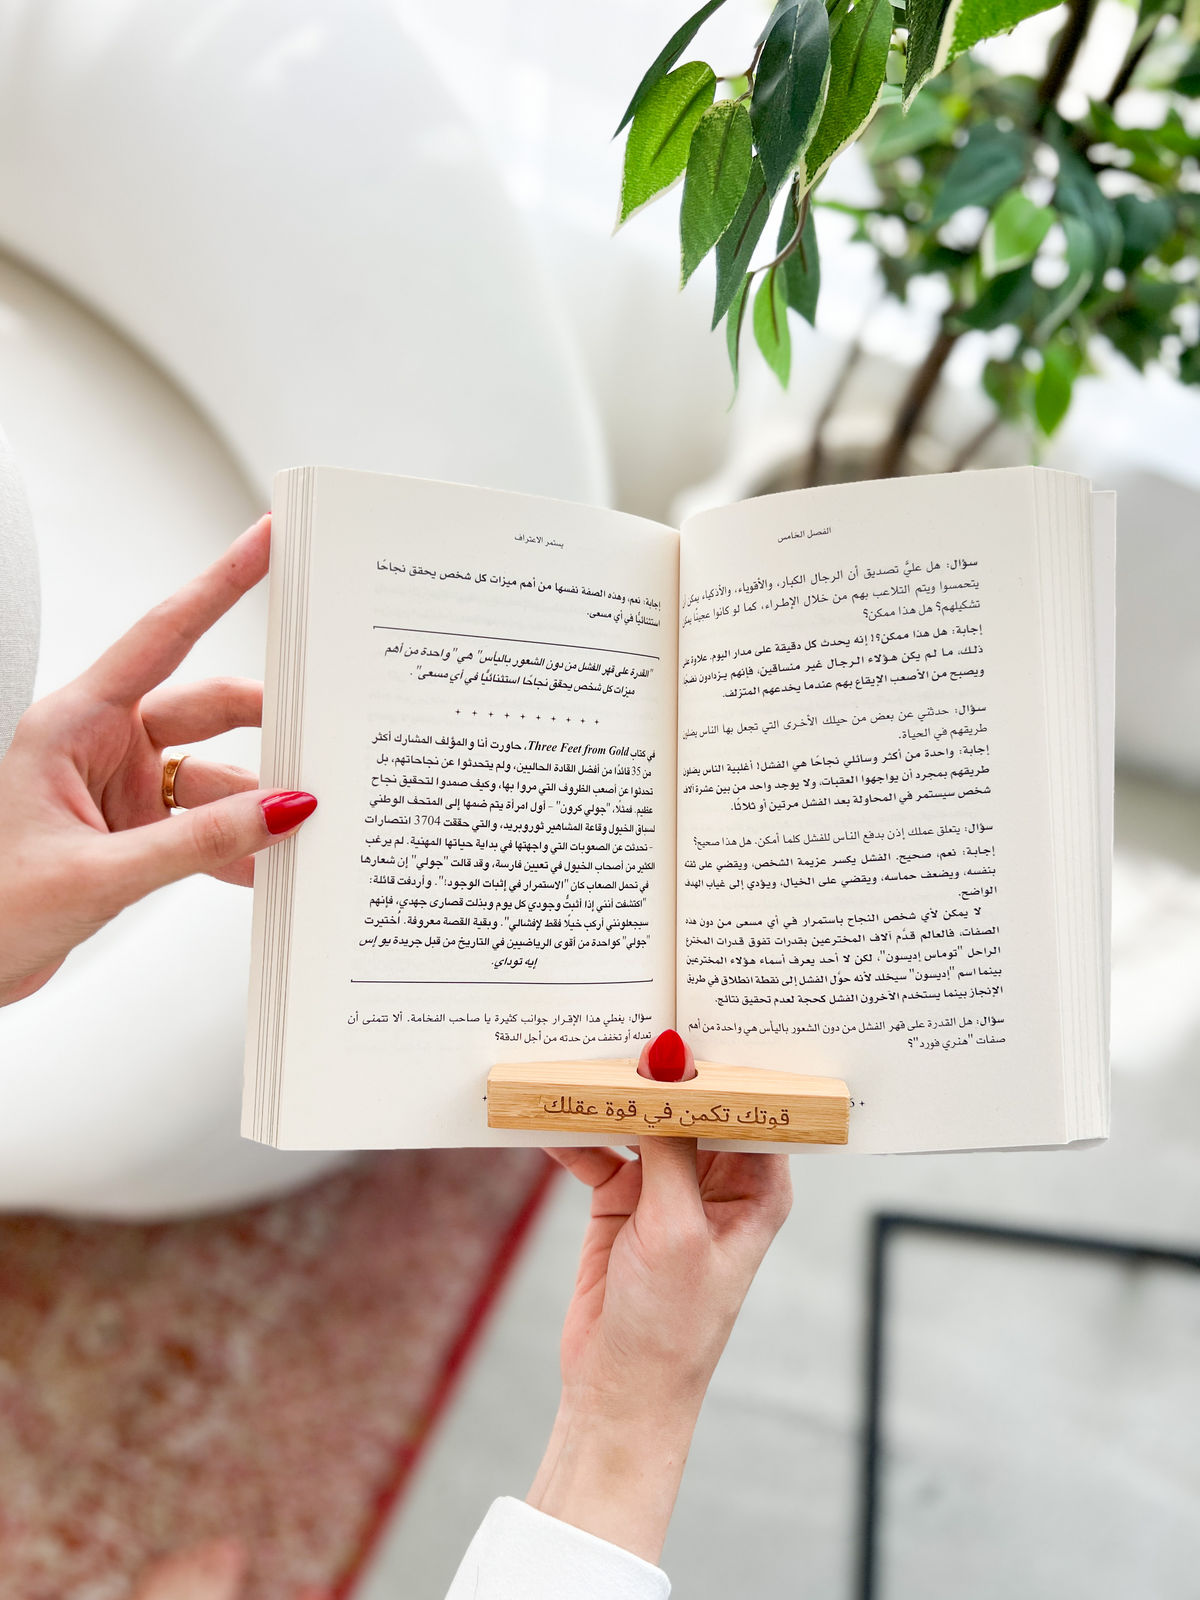 الفصل الخامس
سؤال: هل عليَّ تصديق أن الرجال الكبار، والأقوياء، والأذكياء يمكن أن
يتحمسوا ويتم التلاعب بهم من خلال الإطراء، كما لو كانوا عجينًا يمكن
تشكيلهم؟ هل هذا ممكن؟
إجابة: هل هذا ممكن؟! إنه يحدث كل دقيقة على مدار اليوم. علاوة على
ذلك، ما لم يكن هؤلاء الرجال غير منساقين، فإنهم يزدادون نضجًا
ويصبح من الأصعب الإيقاع بهم عندما يخدعهم المتزلف.
سؤال: حدثني عن بعض من حيلك الأخرى التي تجعل بها الناس يضلون
طريقهم في الحياة.
إجابة: واحدة من أكثر وسائلي نجاحًا هي الفشل! أغلبية الناس يضلون
طريقهم بمجرد أن يواجهوا العقبات، ولا يوجد واحد من بين عشرة آلاف
شخص سيستمر في المحاولة بعد الفشل مرتين أو ثلاثًا.
سؤال: يتعلق عملك إذن بدفع الناس للفشل كلما أمكن. هل هذا صحيح؟
إجابة: نعم، صحيح. الفشل يكسر عزيمة الشخص، ويقضي على ثقته
بنفسه، ويضعف حماسه، ويقضي على الخيال، ويؤدي إلى غياب الهدف
الواضح.
لا يمكن لأي شخص النجاح باستمرار في أي مسعى من دون هذه
الصفات، فالعالم قدَّم آلاف المخترعين بقدرات تفوق قدرات المخترع
الراحل "توماس إديسون"، لكن لا أحد يعرف أسماء هؤلاء المخترعين
بينما اسم "إديسون" سيخلد لأنه حوَّل الفشل إلى نقطة انطلاق في طريق
الإنجاز بينما يستخدم الآخرون الفشل كحجة لعدم تحقيق نتائج.
سؤال: هل القدرة على قهر الفشل من دون الشعور باليأس هي واحدة من أهم
صفات "هنري فورد"؟
يستمر الاعتراف
إجابة: نعم، وهذه الصفة نفسها من أهم ميزات كل شخص يحقق نجاحًا
استثنائيًّا في أي مسعى.
"القدرة على قهر الفشل من دون الشعور باليأس" هي "واحدة من أهم
ميزات كل شخص يحقق نجاحًا استثنائيًّا في أي مسعى".
في كتاب Three Feet from Gold، حاورت أنا والمؤلف المشارك أكثر
من 35 قائدًا من أفضل القادة الحاليين، ولم يتحدثوا عن نجاحاتهم، بل
تحدثوا عن أصعب الظروف التي مروا بها، وكيف صمدوا لتحقيق نجاح
عظيم. فمثلًا، "جولي كرون" – أول امرأة يتم ضمها إلى المتحف الوطني
لسباق الخيول وقاعة المشاهير ثوروبريد، والتي حققت 3704 انتصارات
- تحدثت عن الصعوبات التي واجهتها في بداية حياتها المهنية. لم يرغب
الكثير من أصحاب الخيول في تعيين فارسة، وقد قالت "جولي" إن شعارها
في تحمل الصعاب كان "الاستمرار في إثبات الوجود!". وأردفت قائلة:
"اكتشفت أنني إذا أثبتُّ وجودي كل يوم وبذلت قصارى جهدي، فإنهم
سيجعلونني أركب خيلًا فقط لإفشالي". وبقية القصة معروفة. اُختيرت
"جولي" كواحدة من أقوى الرياضيين في التاريخ من قبل جريدة يو إس
إيه توداي.
سؤال: يغطي هذا الإقرار جوانب كثيرة يا صاحب الفخامة. ألا تتمنى أن
تعدله أو تخفف من حدته من أجل الدقة؟
قوتك تكمن في قوة عقلك